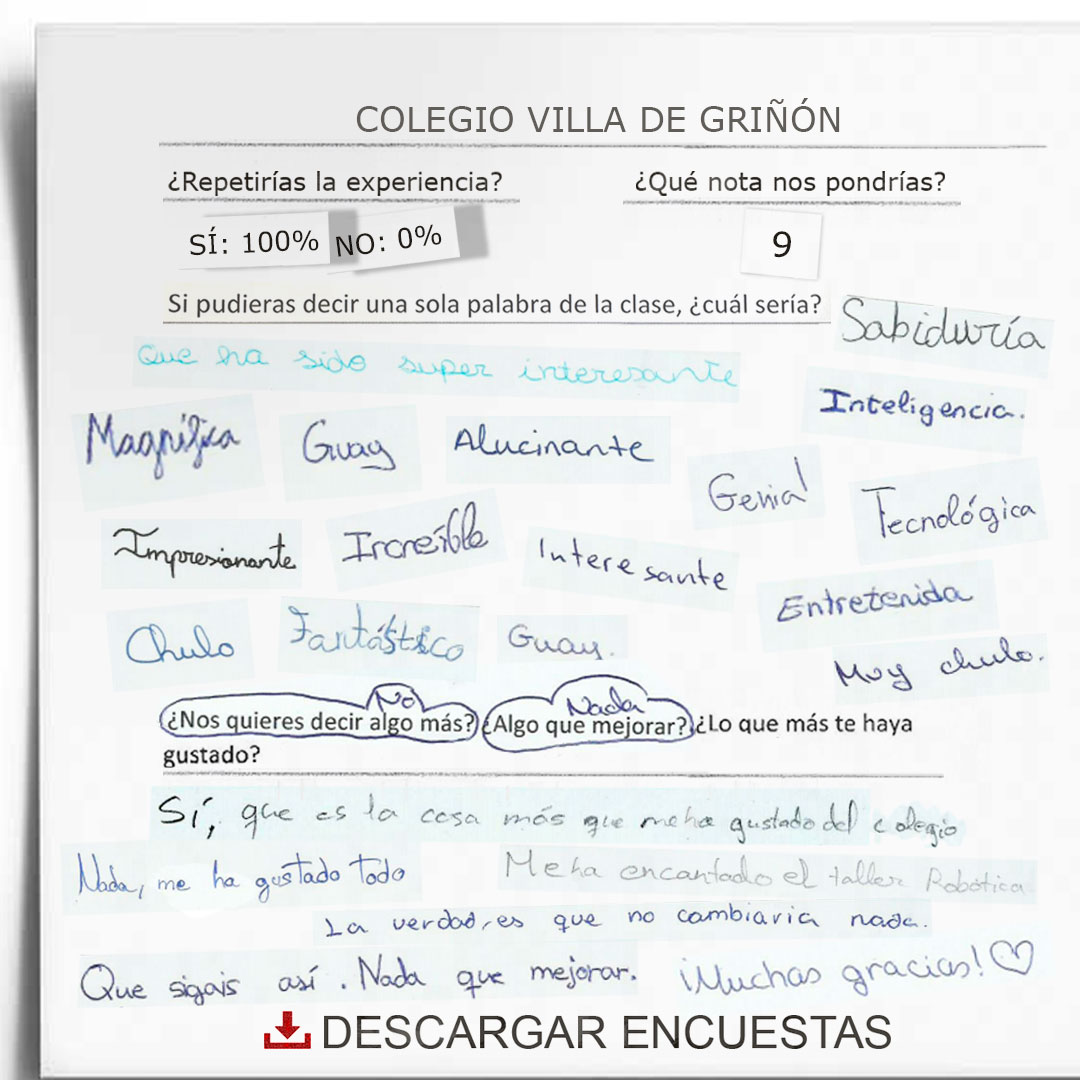 COLEGIO VILLA DE GRIÑÓN
¿Repetirías la experiencia?
¿Qué nota nos pondrías?
SÍ: 100%
NO: 0%
9
Si pudieras decir una sola palabra de la clase, ¿cuál sería?
Sabiduría
Que ha sido super interesante
Inteligencia.
Magnífica
Guay
Alucinante
Genial
Tecnológica
Impresionante
Increíble
Interesante
Entretenida
Chulo
Fantástico
Guay.
Muy chulo.
No
Nada
¿Nos quieres decir algo más? ¿Algo que mejorar? ¿Lo que más te haya
gustado?
Sí, que es la cosa más que me ha gustado del colegio
Nada, me ha gustado todo
Me ha encantado el taller Robótica
La verdad, es que no cambiaria nada.
Que sigais así. Nada que mejorar.
¡Muchas gracias! ♡
DESCARGAR ENCUESTAS